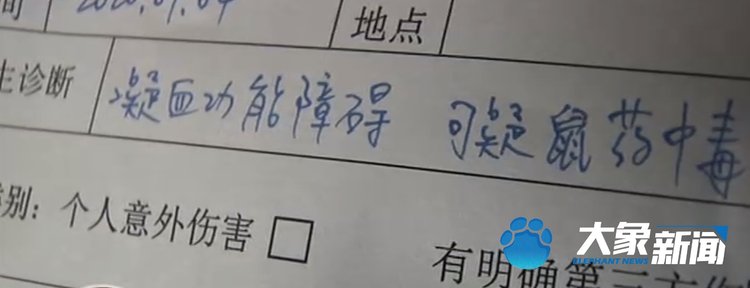 间 2020.01.04 地点
主诊断 凝血功能障碍 可疑鼠药中毒
别：个人意外伤害 □ 有明确第三方
大象新闻
ELEPHANT NEWS